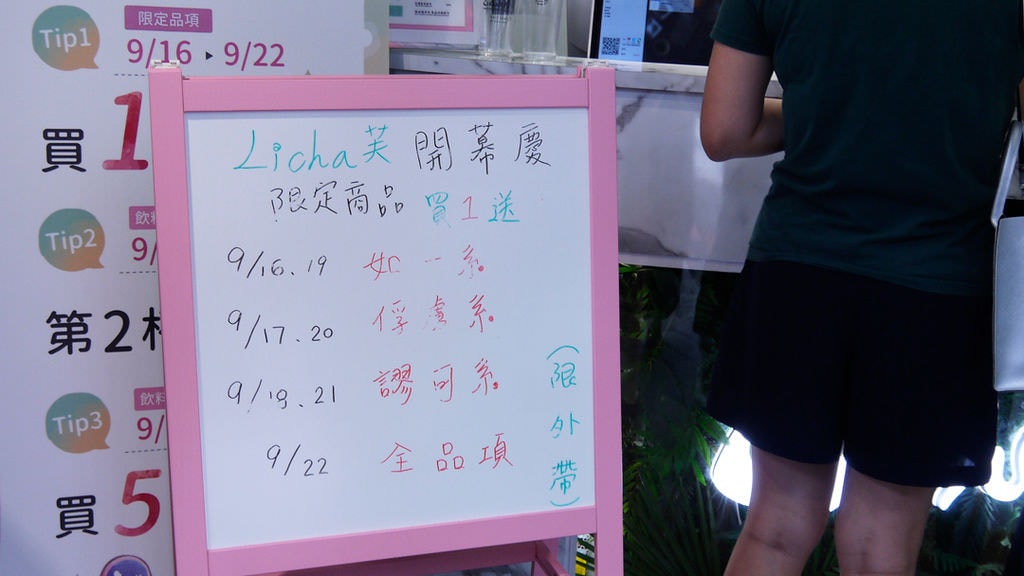 Tip1
限定品項
9/16 ▸ 9/22
買1
Tip2
飲料
9/
第2杯
Tip3
飲料
9/
買5
Licha芙 開幕慶
限定商品 買1送
9/16、19 如一系
9/17、20 俘虜系
9/18、21 謬可系
9/22 全品項
(限外帶)